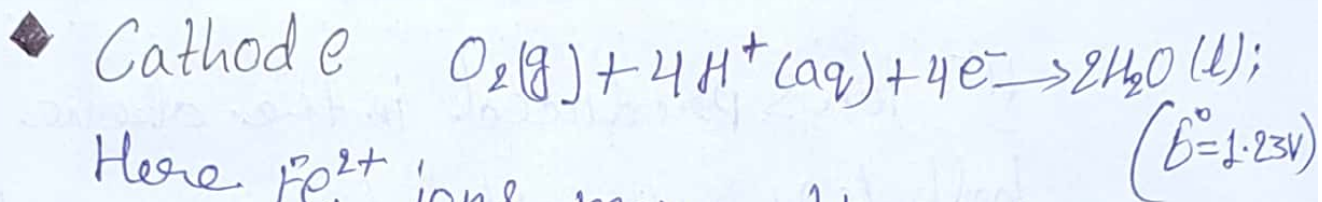 Cathode O₂(g) + 4H⁺(aq) + 4e⁻ → 2H₂O(l);
(E° = 1.23V)
Here Fe²⁺ ions